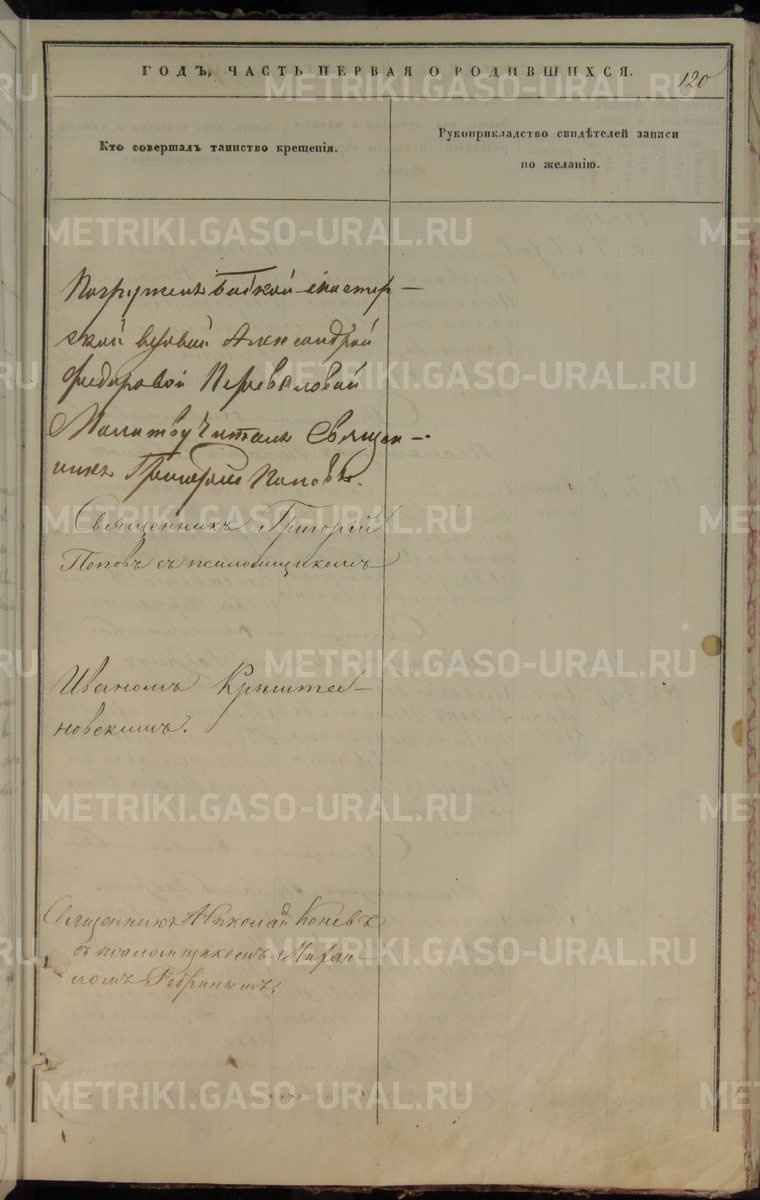 ГОДЪ, ЧАСТЬ ПЕРВАЯ О РОДИВШИХСЯ.
120
Кто совершалъ таинство крещенія.
Рукоприкладство свидѣтелей записи
по желанію.
Погруженъ бабкой мастер-
ской вдовой Александрой
Федоровой Переваловой
Молитву читалъ Священ-
никъ Григорій Поповъ.
Священникъ Григорій
Поповъ съ псаломщикомъ
Иваномъ Крыште-
новскимъ.
Священникъ Николай Коневъ
съ псаломщикомъ Михаи-
ломъ Ребринымъ.
METRIKI.GASO-URAL.RU